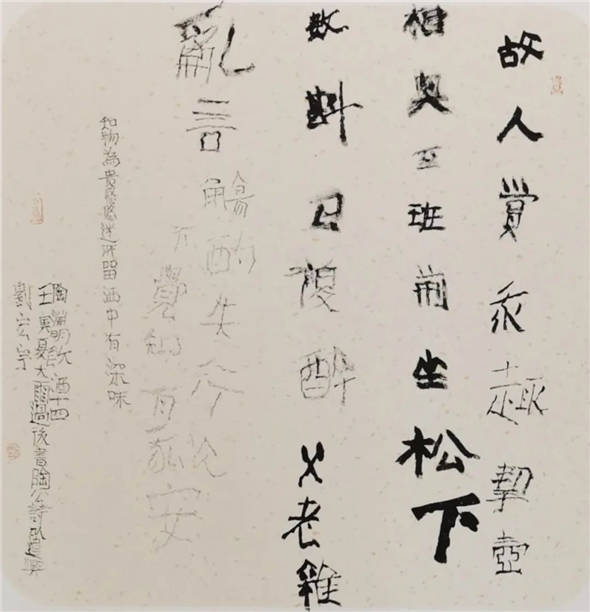 故人賞我趣挈壺
相與至班荊坐松下
數斟已復醉父老雜
亂言觴酌失行次
不覺知有我安
知物為貴悠悠迷所留酒中有深味
陶淵明飲酒十四
壬寅夏大雨過後書陶公詩
劉宇